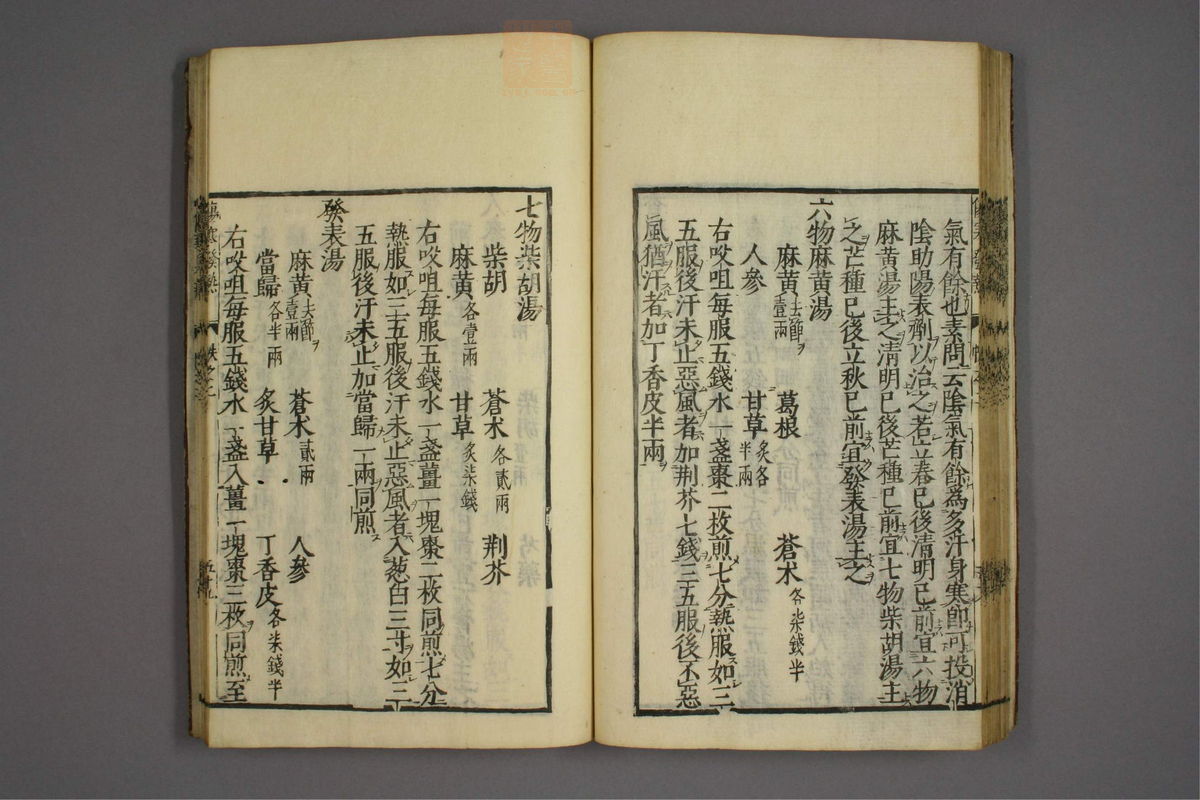 氣有餘也素問云陰氣有餘爲多汗身寒卽可投消
陰助陽表劑以治之若立春已後清明已前宜六物
麻黃湯主之清明已後芒種已前宜七物柴胡湯主
之芒種已後立秋已前宜發表湯主之
六物麻黃湯
麻黃去節ヲ壹兩 葛根 蒼朮各柒錢半
人參 甘草炙各半兩
右㕮咀每服五錢水一盞棗二枚煎七分熱服如三
五服後汗未止惡風者加荆芥七錢三五服後不惡
風猶汗者加丁香皮半兩
七物柴胡湯
柴胡 蒼朮各貳兩 荆芥
麻黃各壹兩 甘草炙柒錢
右㕮咀每服五錢水一盞薑一塊棗二枚同煎七分
熱服如三五服後汗未止惡風者入葱白三寸如三
五服後汗未止加當歸一兩同煎
發表湯
麻黃去節ヲ壹兩 蒼朮貳兩 人參
當歸各半兩 炙甘草 丁香皮各柒錢半
右㕮咀每服五錢水一盞入薑一塊棗三枚同煎至